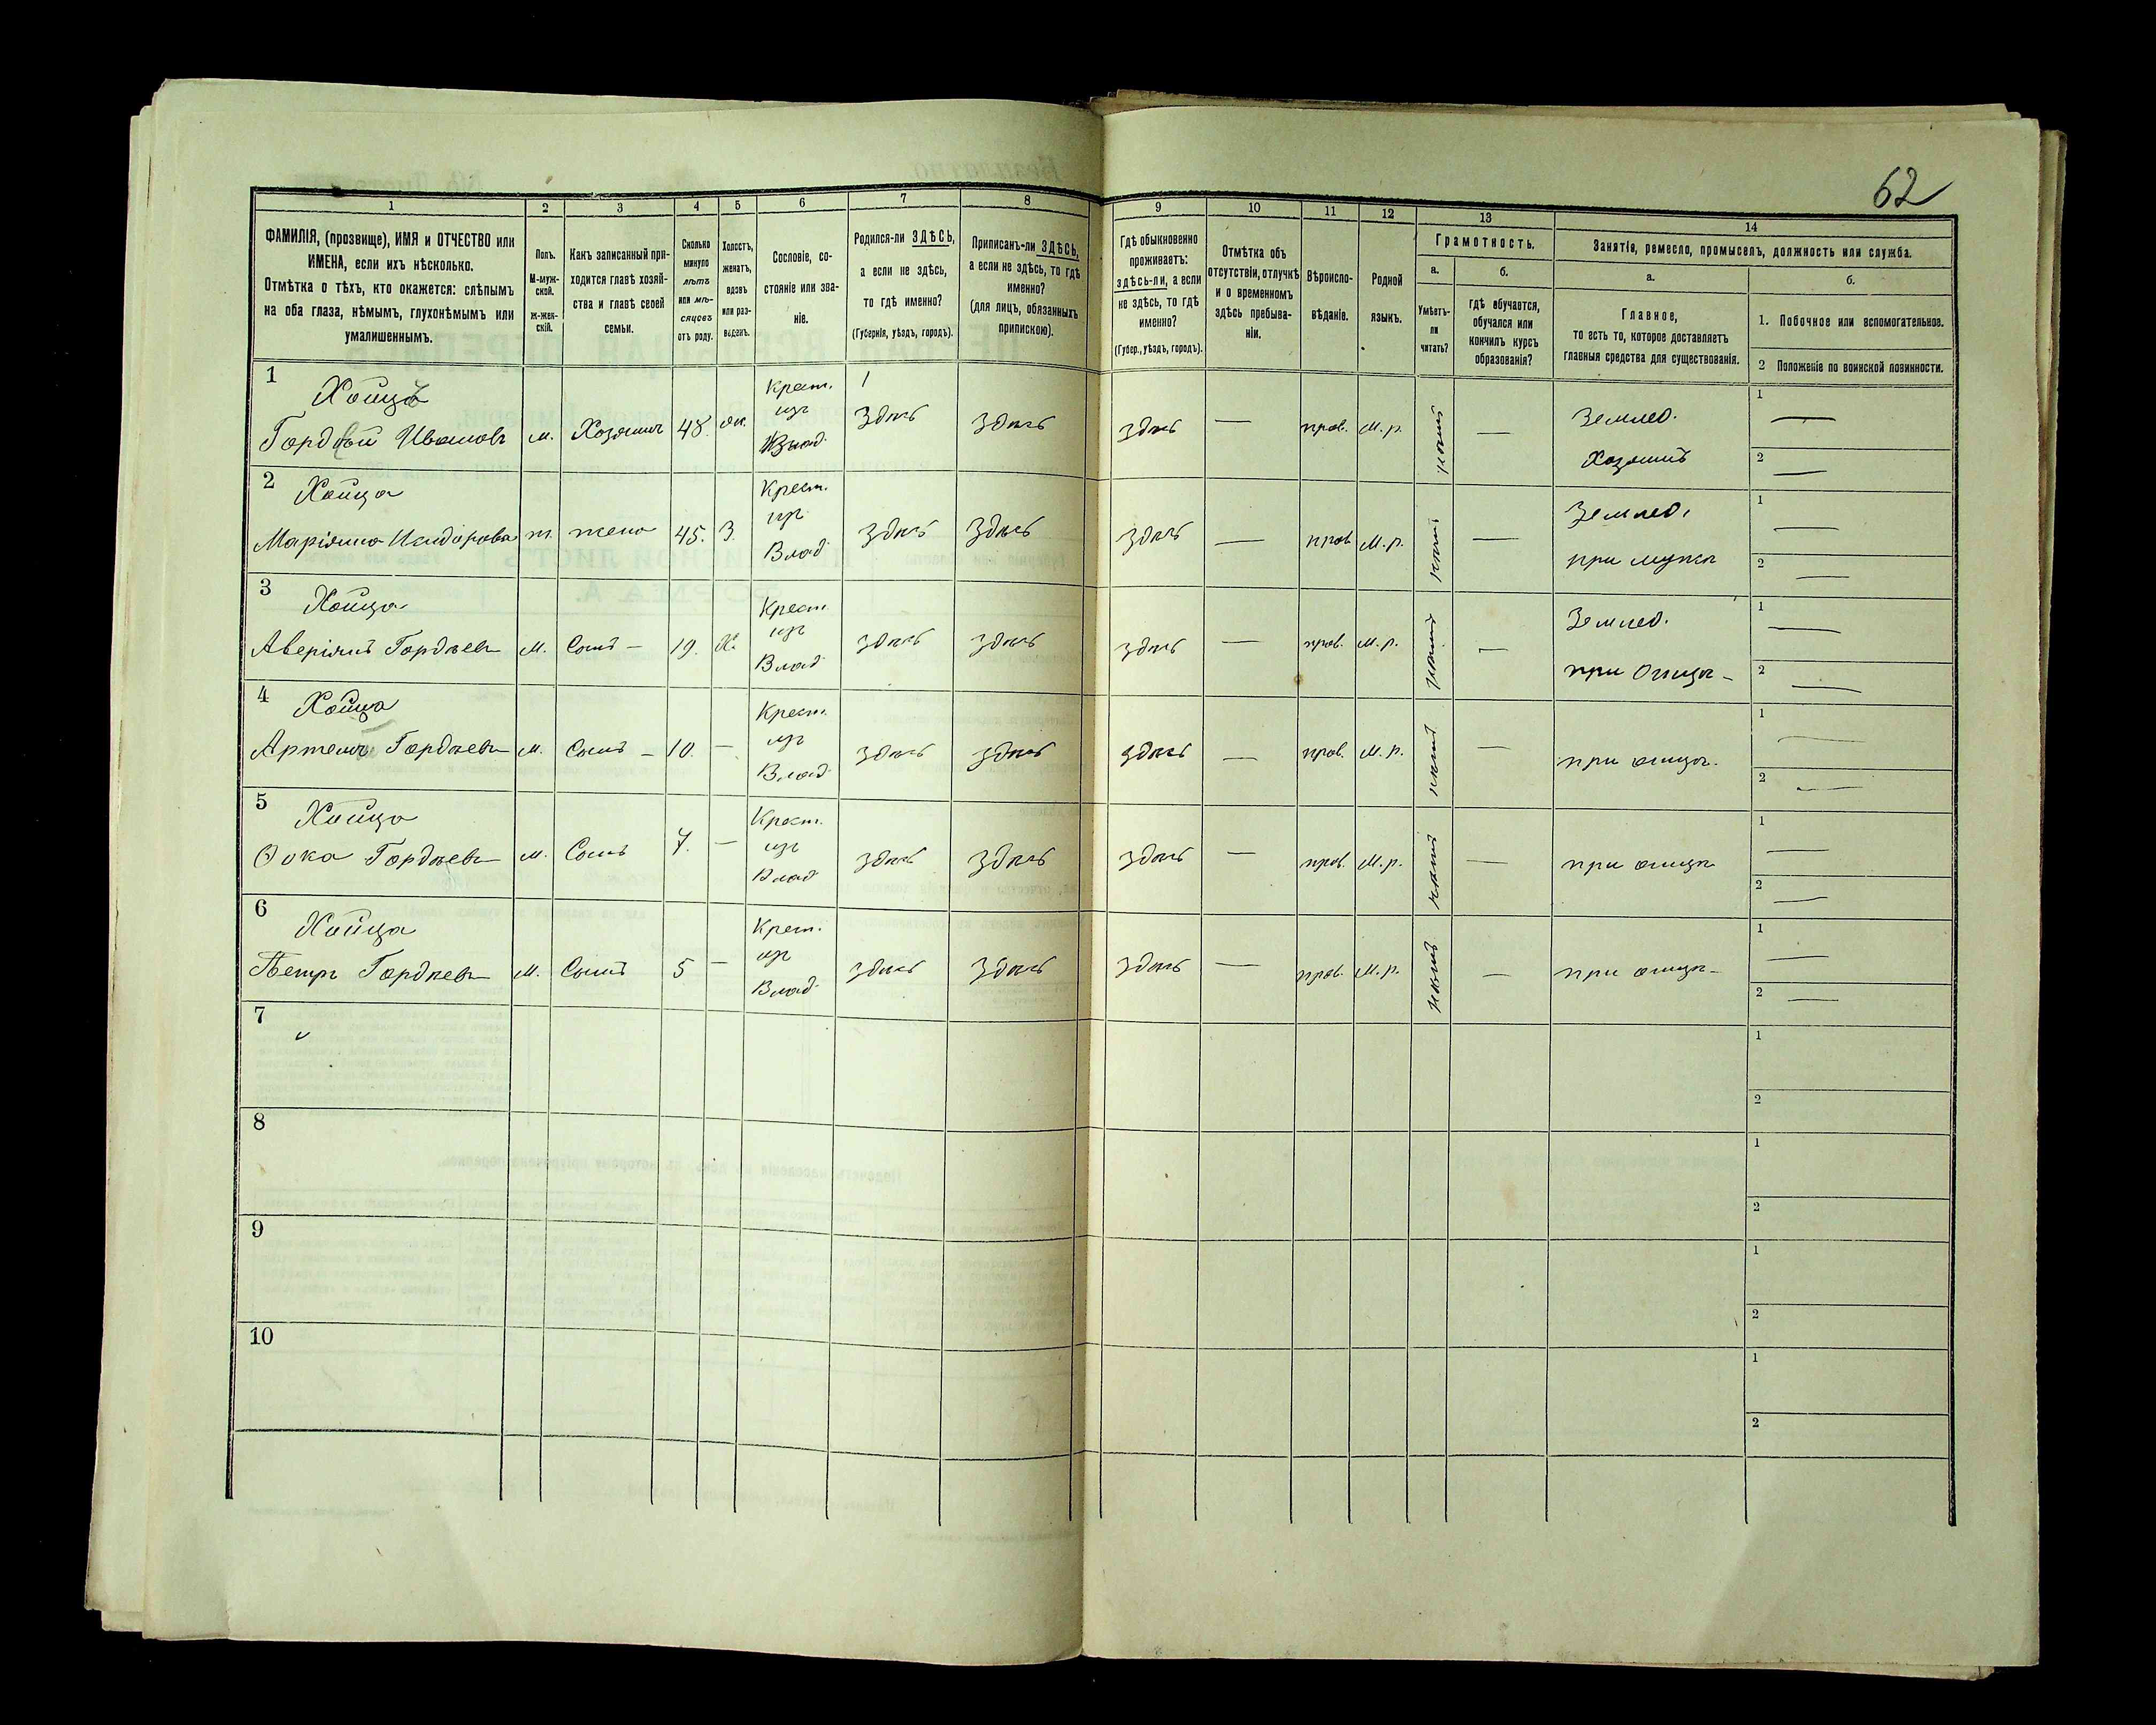 62
1
2
3
4
5
6
7
8
9
10
11
12
13
14
ФАМИЛІЯ, (прозвище), ИМЯ и ОТЧЕСТВО или
ИМЕНА, если ихъ нѣсколько.
Отмѣтка о тѣхъ, кто окажется: слѣпымъ
на оба глаза, нѣмымъ, глухонѣмымъ или
умалишеннымъ.
Полъ.
М-муж-
ской.
ж-жен-
скій.
Какъ записанный при-
ходится главѣ хозяй-
ства и главѣ своей
семьи.
Сколько
минуло
лѣтъ
или мѣ-
сяцевъ
отъ роду.
Холостъ,
женатъ,
вдовъ
или раз-
веденъ.
Сословіе, со-
стояніе или зва-
ніе.
Родился-ли ЗДѢСЬ,
а если не здѣсь,
то гдѣ именно?
(Губернія, уѣздъ, городъ).
Приписанъ-ли ЗДѢСЬ,
а если не здѣсь, то гдѣ
именно?
(для лицъ, обязанныхъ
припискою).
Гдѣ обыкновенно
проживаетъ:
здѣсь-ли, а если
не здѣсь, то гдѣ
именно?
(Губер., уѣздъ, городъ).
Отмѣтка объ
отсутствіи, отлучкѣ
и о временномъ
здѣсь пребыва-
ніи.
Вѣроиспо-
вѣданіе.
Родной
языкъ.
Грамотность.
а.
Умѣетъ-
ли
читать?
б.
гдѣ обучается,
обучался или
кончилъ курсъ
образованія?
Занятія, ремесло, промыселъ, должность или служба.
а.
Главное,
то есть то, которое доставляетъ
главныя средства для существованія.
б.
1. Побочное или вспомогательное.
2 Положеніе по воинской повинности.
1
Хоица
Гордѣй Ивановъ м. Хозяинъ 48. жен. Крест. изъ Влад. здѣсь здѣсь здѣсь — прав. М.р. нѣтъ — Землед. Хозяинъ
1 —
2 —
2
Хоица
Маріанна Исидорова ж. жена 45. З. Крест. изъ Влад. здѣсь здѣсь здѣсь — прав. М.р. нѣтъ — Землед. при мужѣ
1 —
2 —
3
Хоица
Аверіянъ Гордѣевъ М. Сынъ — 19. Х. Крест. изъ Влад. здѣсь здѣсь здѣсь — прав. М.р. нѣтъ — Землед. при Отцѣ —
1 —
2 —
4
Хоица
Артемъ Гордѣевъ М. Сынъ — 10. — Крест. изъ Влад. здѣсь здѣсь здѣсь — прав. М.р. нѣтъ — при отцѣ.
1 —
2 —
5
Хоица
Ѳока Гордѣевъ М. Сынъ 7. — Крест. изъ Влад. здѣсь здѣсь здѣсь — прав. М.р. нѣтъ — при отцѣ
1 —
2 —
6
Хоица
Петръ Гордѣевъ М. Сынъ 5 — Крест. изъ Влад. здѣсь здѣсь здѣсь — прав. М.р. нѣтъ — при отцѣ —
1 —
2 —
7
1
2
8
1
2
9
1
2
10
1
2